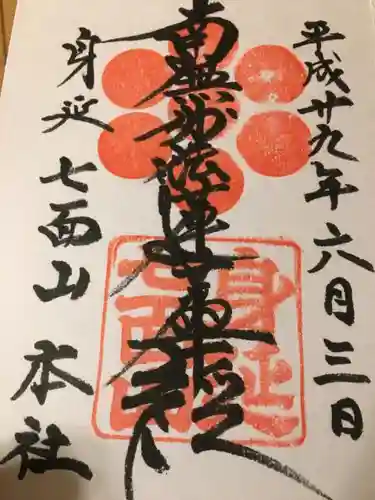 平成廿九年六月三日
南無妙法蓮華経
身延
七面山
本社
身延
七面山